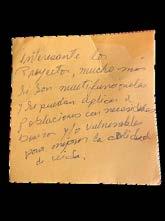 Interesante los
Proyectos, mucho más
si son multifuncionales
y se puedan aplicar a
Poblaciones con necesidades
y/o vulnerables
para mejorar la calidad
de vida.